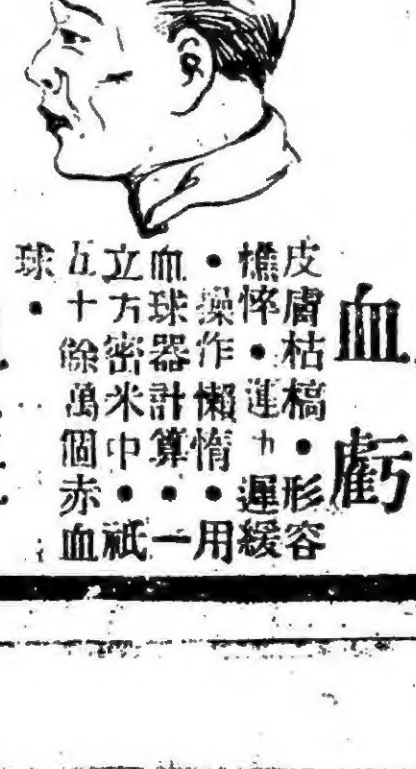 血虧
皮膚枯槁●形容
憔悴●運力遲緩
●操作懶惰●用
血球器計算●一
立方密米中●祇
五十餘萬個赤血
球●